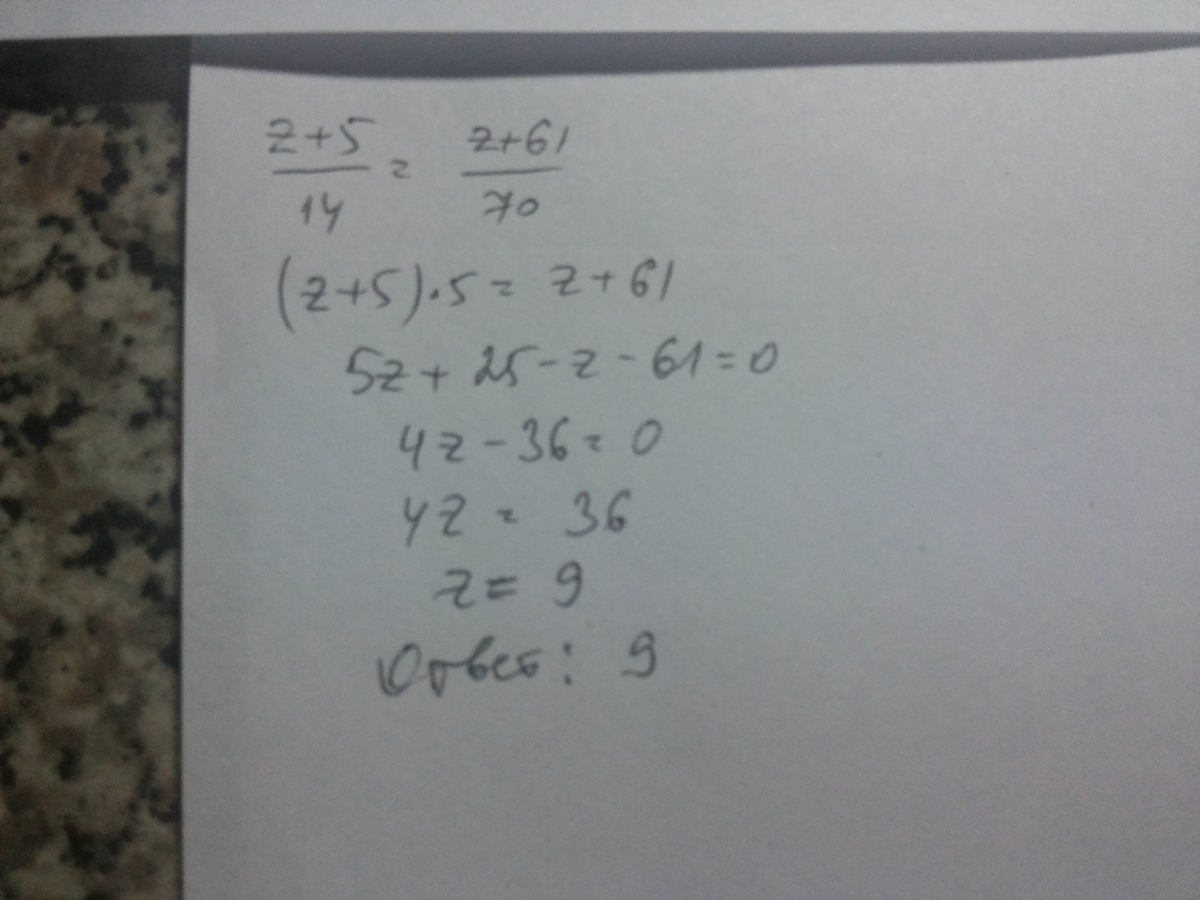 z+5/14 = z+61/70
(z+5)·5 = z+61
5z+25-z-61=0
4z-36=0
4z = 36
z = 9
Ответ: 9